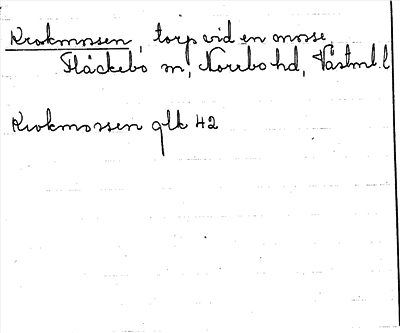 Krokmossen, torp vid en mosse
Fläckebo sn, Norrbo hd, Västml. l
Krokmossen glk 42